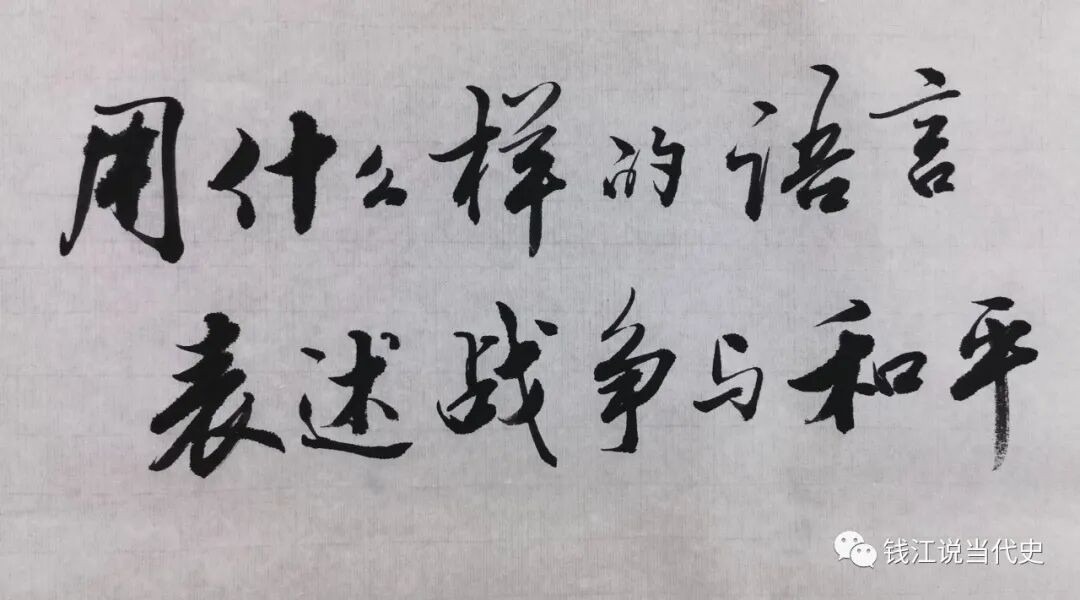 用什么样的语言
表述战争与和平
钱江说当代史